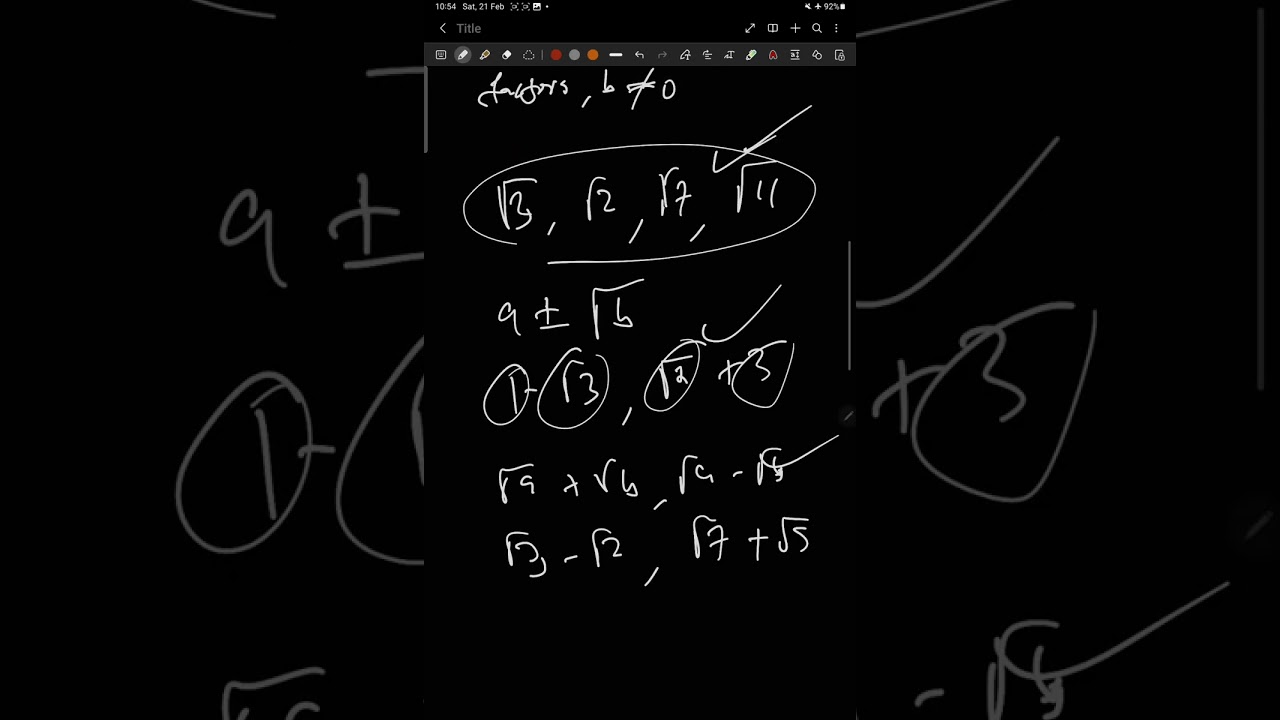 10:54 Sat, 21 Feb 92%
Title
factors, b ≠ 0
√3, √2, √7, √11
a ± √b
1 - √3, √2 + 3
√a + √b, √a - √b
√3 - √2, √7 + √5